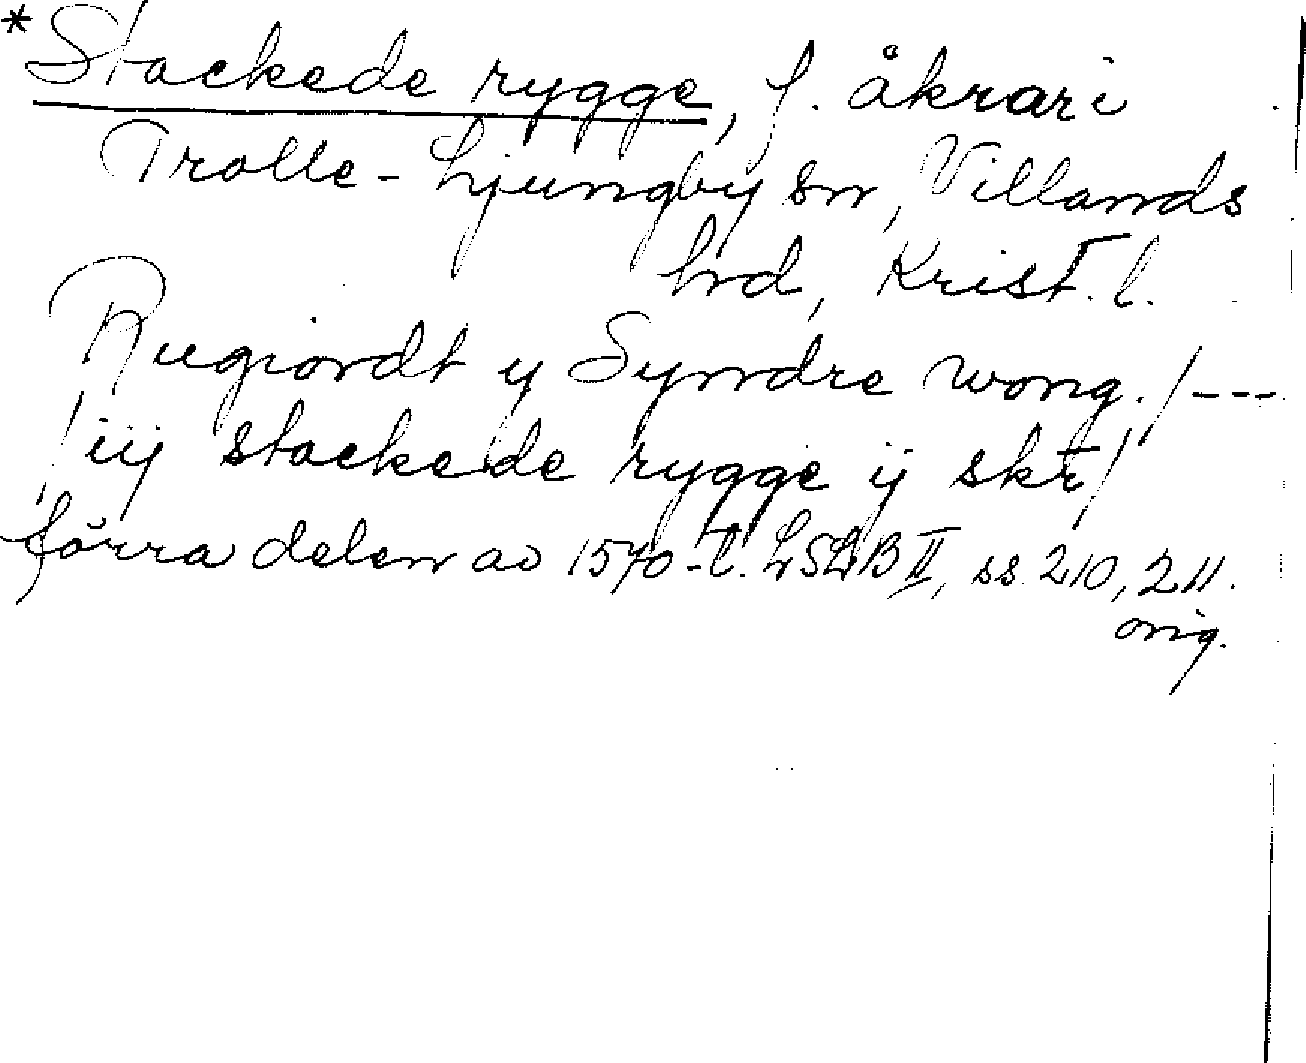 *Stackede rygge, f. åkrar i
Trolle-Ljungby sn, Villands
hrd, Krist. l.
Rugiordt y Syndre wong. / ---
/ iij stackede rygge ij skr /
förra delen av 1570-t. LSLB II, ss. 210, 211.
orig.